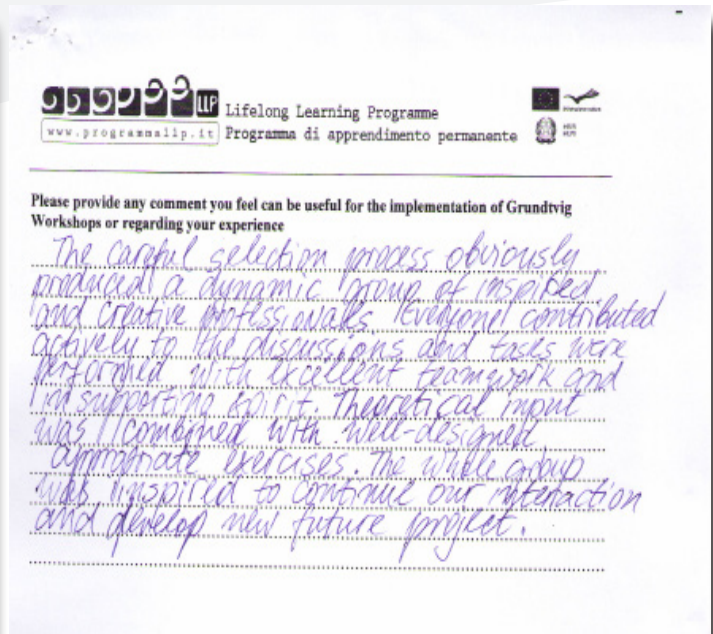 LLP
Lifelong Learning Programme
www.programmallp.it
Programma di apprendimento permanente
Please provide any comment you feel can be useful for the implementation of Grundtvig
Workshops or regarding your experience
The careful selection process obviously
produced a dynamic group of inspired
and creative professionals. Everyone contributed
actively to the discussions and tasks were
performed with excellent teamwork and
in supporting spirit. Theoretical input
was combined with well-designed
appropriate exercises. The whole group
was inspired to continue our interaction
and develop new future project.